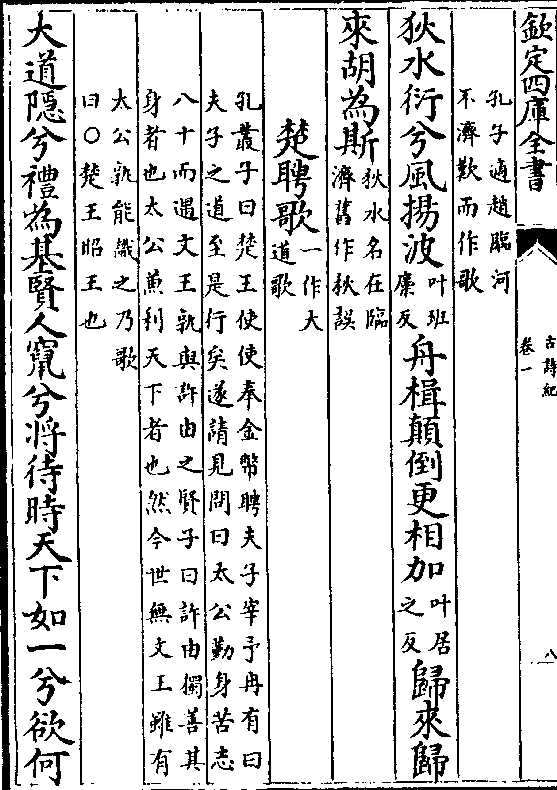 欽定四庫全書
古詩紀
卷一
八
孔子適趙臨河
不濟歎而作歌
狄水衍兮風揚波叶班
糜反舟楫顛倒更相加叶居
之反歸來歸
來胡為斯狄水名在臨
濟舊作秋誤
楚聘歌一作大
道歌
孔叢子曰楚王使使奉金幣聘夫子宰予冉有曰
夫子之道至是行矣遂請見問曰太公勤身苦志
八十而遇文王孰與許由之賢子曰許由獨善其
身者也太公兼利天下者也然今世無文王雖有
太公孰能識之乃歌
曰○楚王昭王也
大道隱兮禮為基賢人竄兮將待時天下如一兮欲何